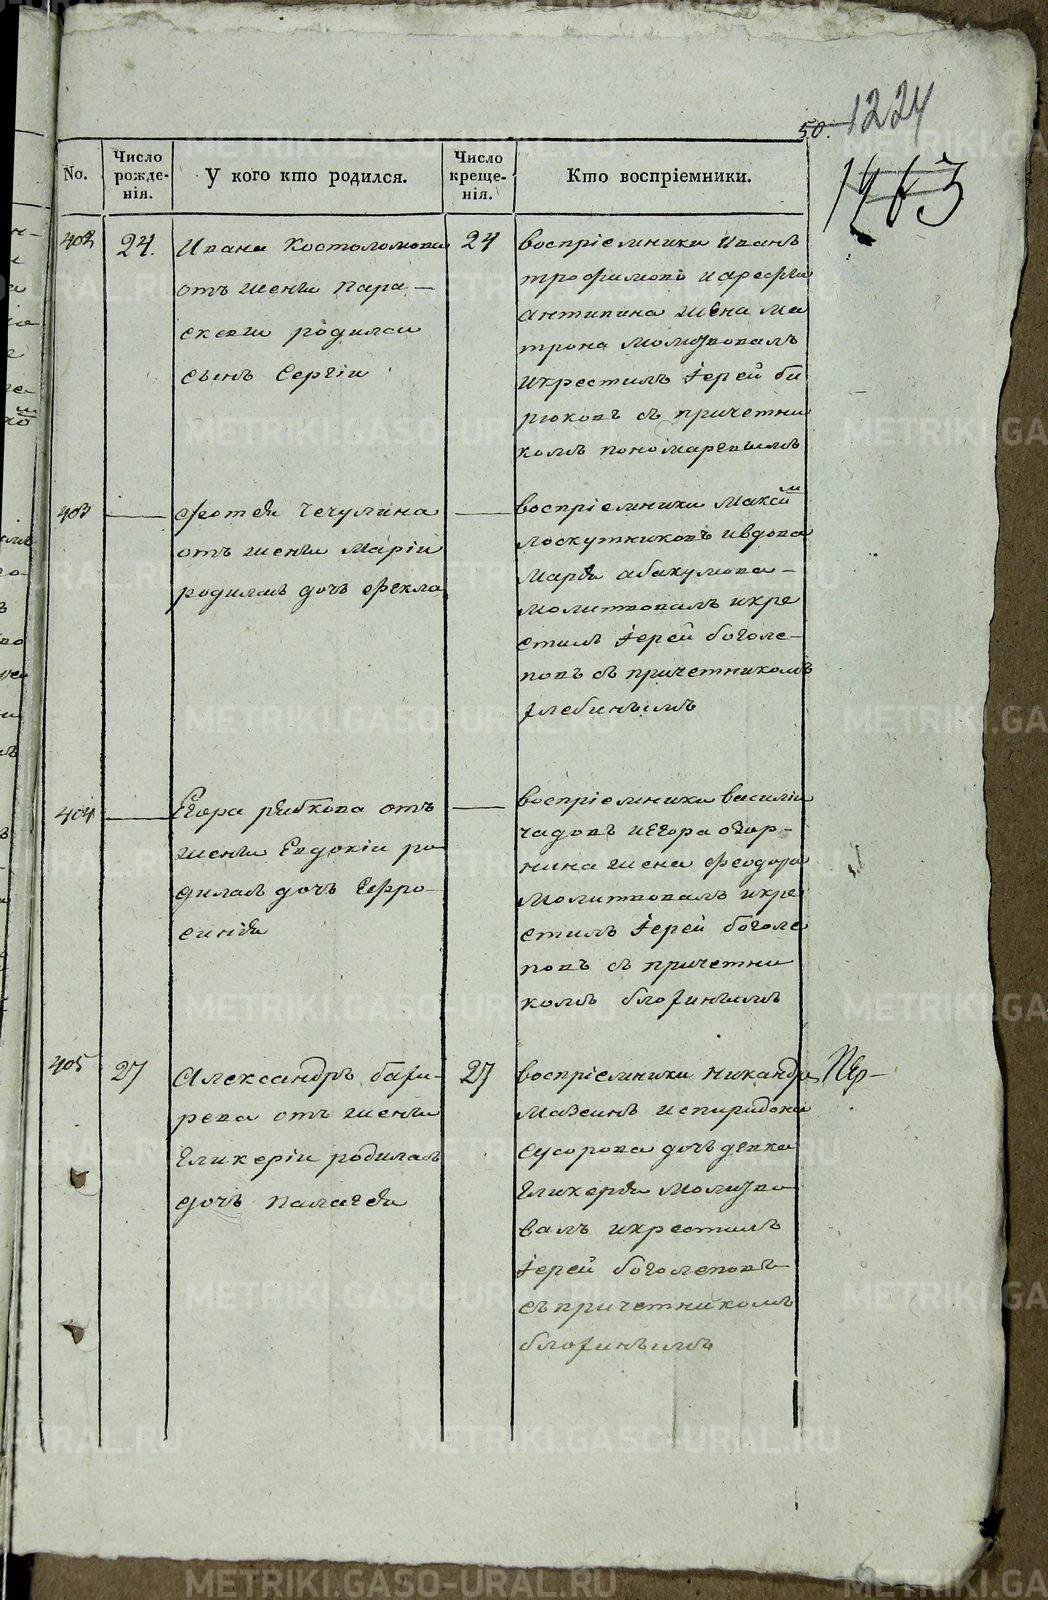 50. 1224
1263
No.
Число рожде-
нія.
У кого кто родился.
Число креще-
нія.
Кто воспріемники.
402
24.
Ивана Костоломова
отъ жены Пара-
скевы родился
сынъ Сергіи
24
воспріемники Иванъ
трофимовъ
антипина жена Ма
трона молитвовалъ
икрестилъ Іерей би
рюковъ съ причетни
комъ пономаревымъ
403
Фотея Чечулина
отъ жены Маріи
родилась дочь Фекла
воспріемники Максим
лоскутниковъ ивдова
Марѳа абакумова
молитвовалъ икре
стилъ Іерей боголе-
повъ съ причетникомъ
404
Егора рябкова отъ
жены Евдокіи ро
дилась дочь Ефро-
синія
воспріемники василіи
чадовъ иегора огор-
нина жена феодора
молитвовалъ икре
стилъ Іерей боголе
повъ съ причетни
комъ
405
27
Александръ
рева отъ жены
Гликеріи родилась
дочь палагея
27
воспріемники никандръ
Мазеинъ испиридона
сусорова дочь девка
Гликерья молитво
валъ икрестилъ
Іерей боголеповъ
съ причетникомъ
METRIKI.GASO-URAL.RU